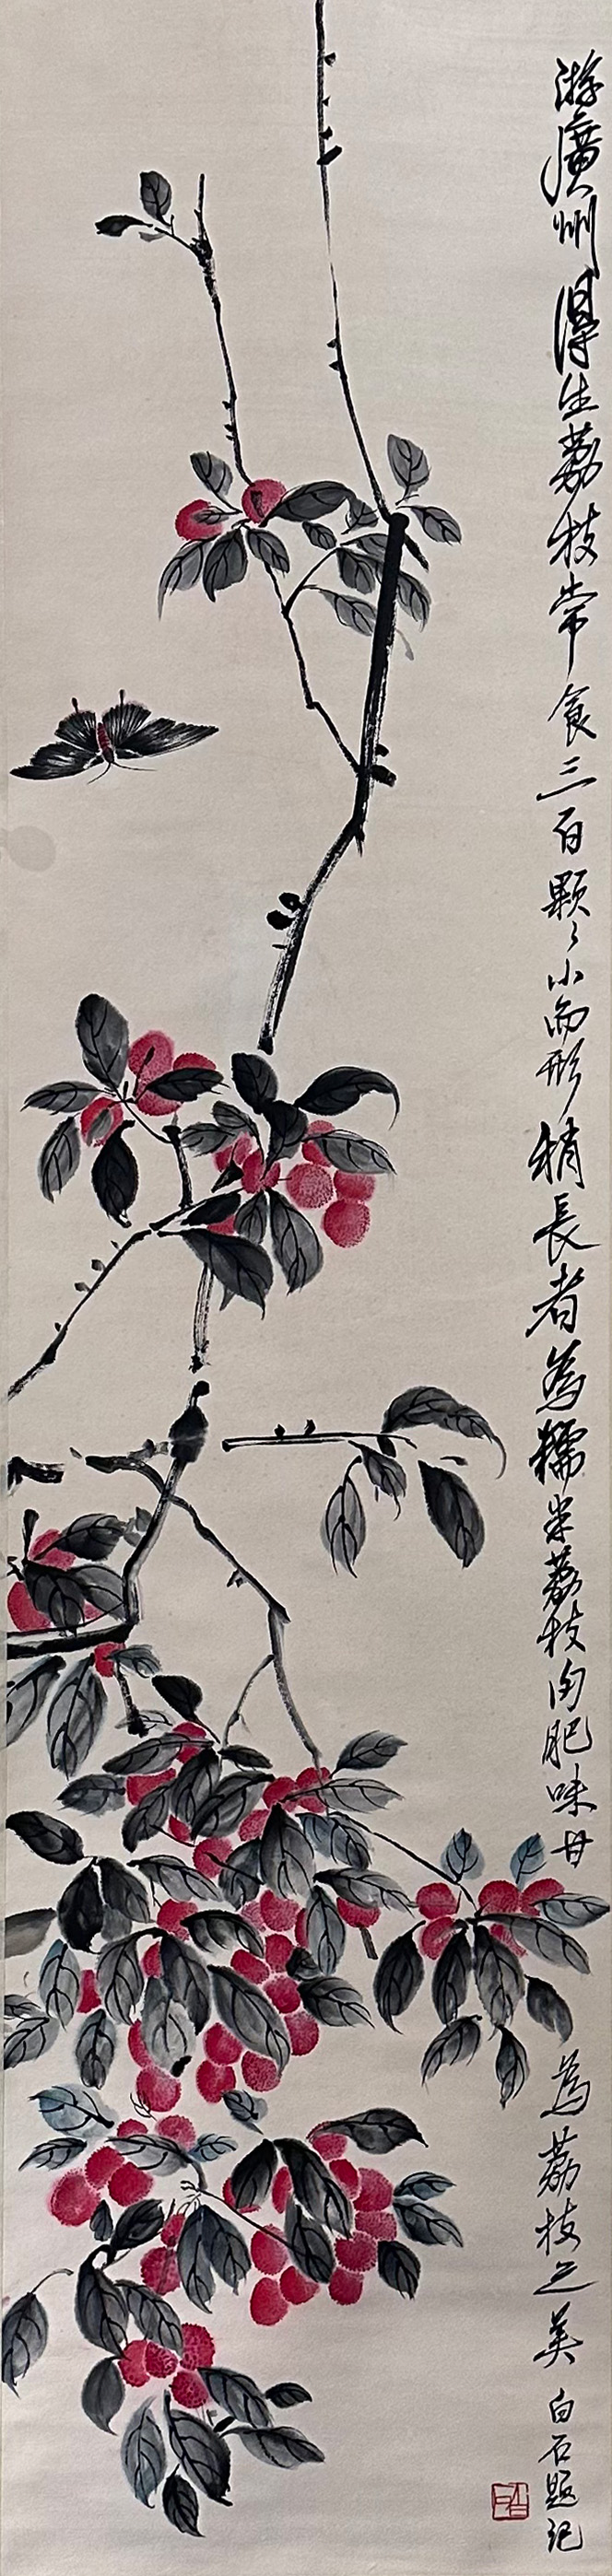 游廣州得生荔枝常食三百顆々小而形稍長者為糯米荔枝肉肥味甘
為荔枝之美 白石題記